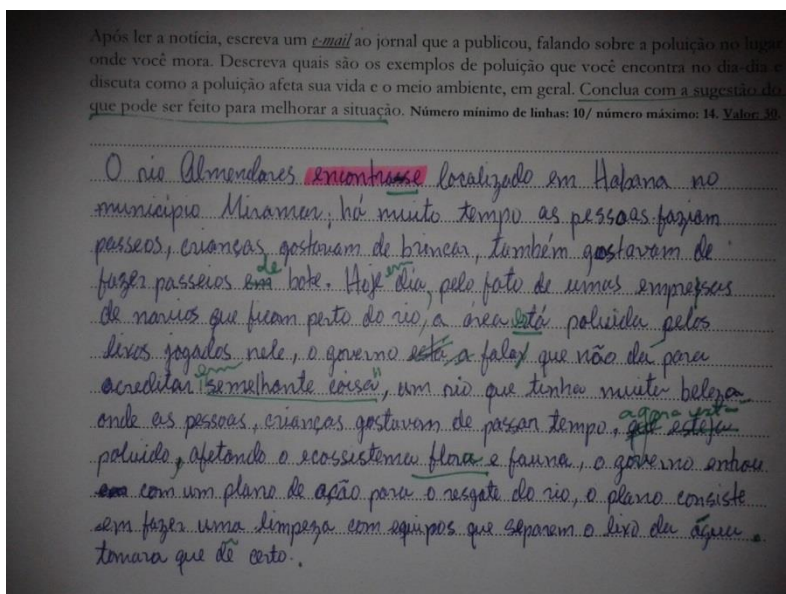 Após ler a notícia, escreva um e-mail ao jornal que a publicou, falando sobre a poluição no lugar
onde você mora. Descreva quais são os exemplos de poluição que você encontra no dia-dia e
discuta como a poluição afeta sua vida e o meio ambiente, em geral. Conclua com a sugestão do
que pode ser feito para melhorar a situação. Número mínimo de linhas: 10/ número máximo: 14. Valor: 30.
O rio Almendares encontrasse localizado em Habana no
município Miramar, há muito tempo as pessoas faziam
passeos, crianças gostavam de brincar, também gostavam de
de em
fazer passeios em bote. Hoje dia, pelo fato de umas empresas
de navios que ficam perto do rio, a área está poluida pelos
lixos jogados nele, o governo está a falar que não da para
em
acreditar "semelhante coisa", um rio que tinha muita beleza
agora está
onde as pessoas, crianças gostavam de passar tempo, que esteja
poluido, afetando o ecossistema flora e fauna, o governo entrou
com um plano de ação para o resgate do rio, o plano consiste
em fazer uma limpeza com equipos que separem o lixo da água.
tomara que dê certo.